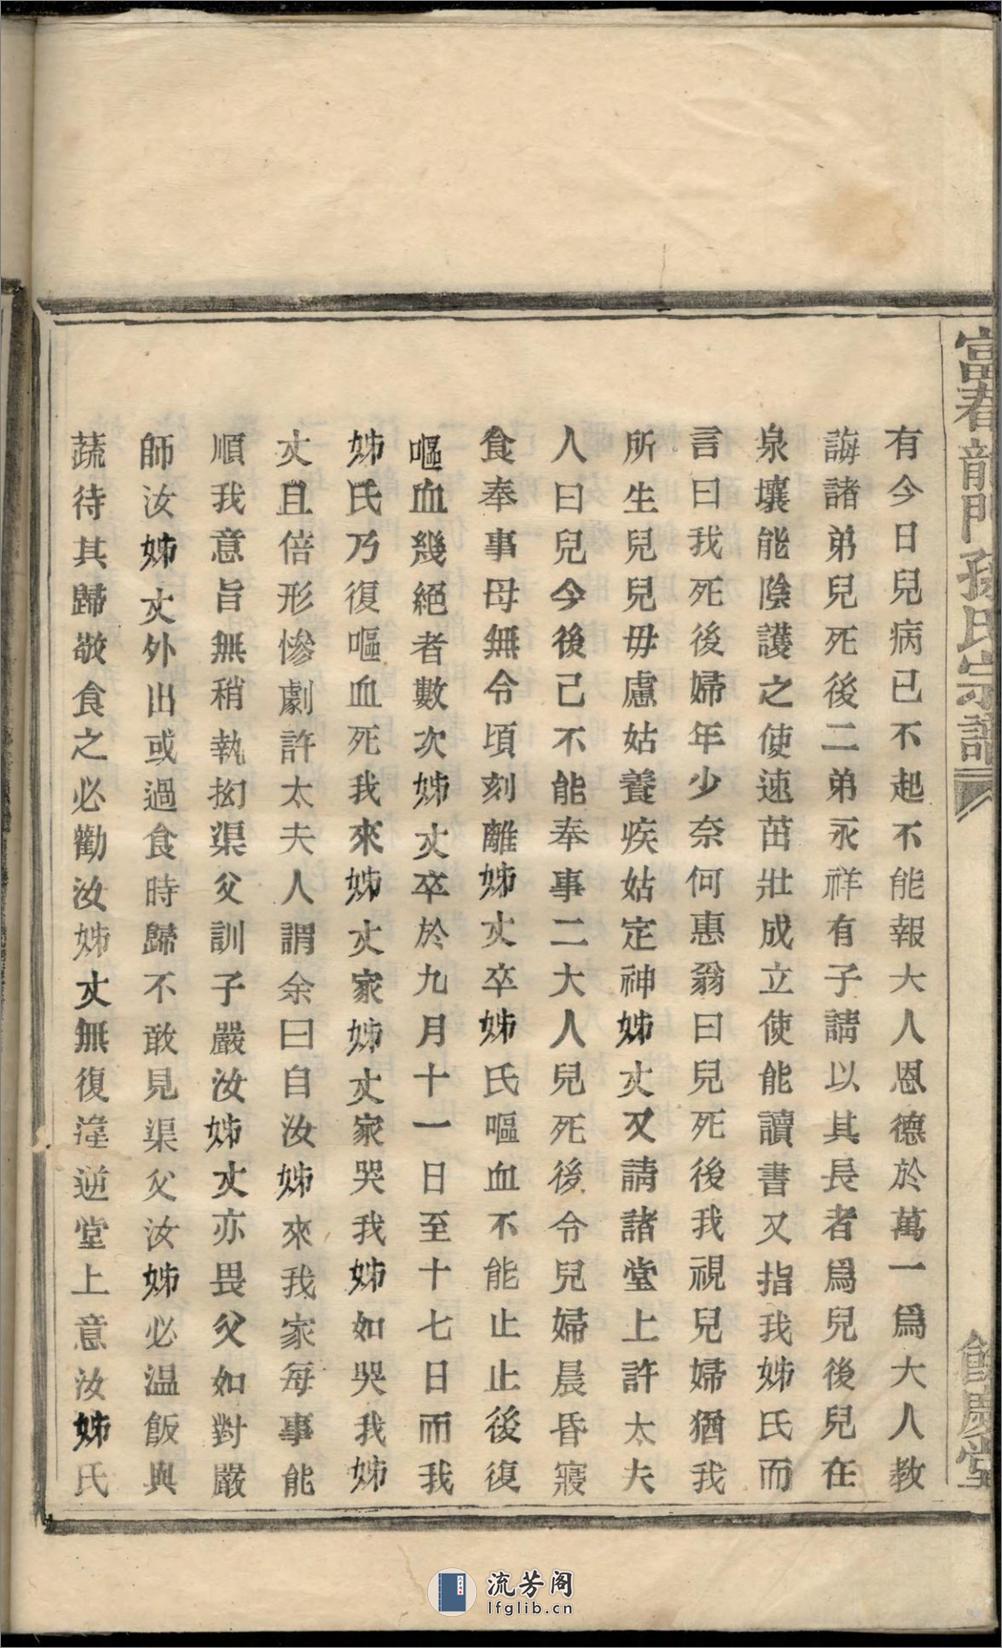 富春龍門孫氏宗譜
餘慶堂
有今日兒病已不起不能報大人恩德於萬一爲大人教
誨諸弟兒死後二弟永祥有子請以其長者爲兒後兒在
泉壤能陰護之使速茁壯成立使能讀書又指我姊氏而
言曰我死後婦年少奈何惠翁曰兒死後我視兒婦猶我
所生兒兒毋慮姑養疾姑定神姊丈又請諸堂上許太夫
人曰兒今後已不能奉事二大人兒死後令兒婦晨昏寢
食奉事母無令頃刻離姊丈卒姊氏嘔血不能止止後復
嘔血幾絕者數次姊丈卒於九月十一日至十七日而我
姊氏乃復嘔血死我來姊丈家姊丈家哭我姊如哭我姊
丈且倍形慘劇許太夫人謂余曰自汝姊來我家每事能
順我意旨無稍執拗渠父訓子嚴汝姊丈亦畏父如對嚴
師汝姊丈外出或過食時歸不敢見渠父汝姊必温飯與
蔬待其歸敬食之必勸汝姊丈無復違逆堂上意汝姊氏
流芳阁
lfglib.cn